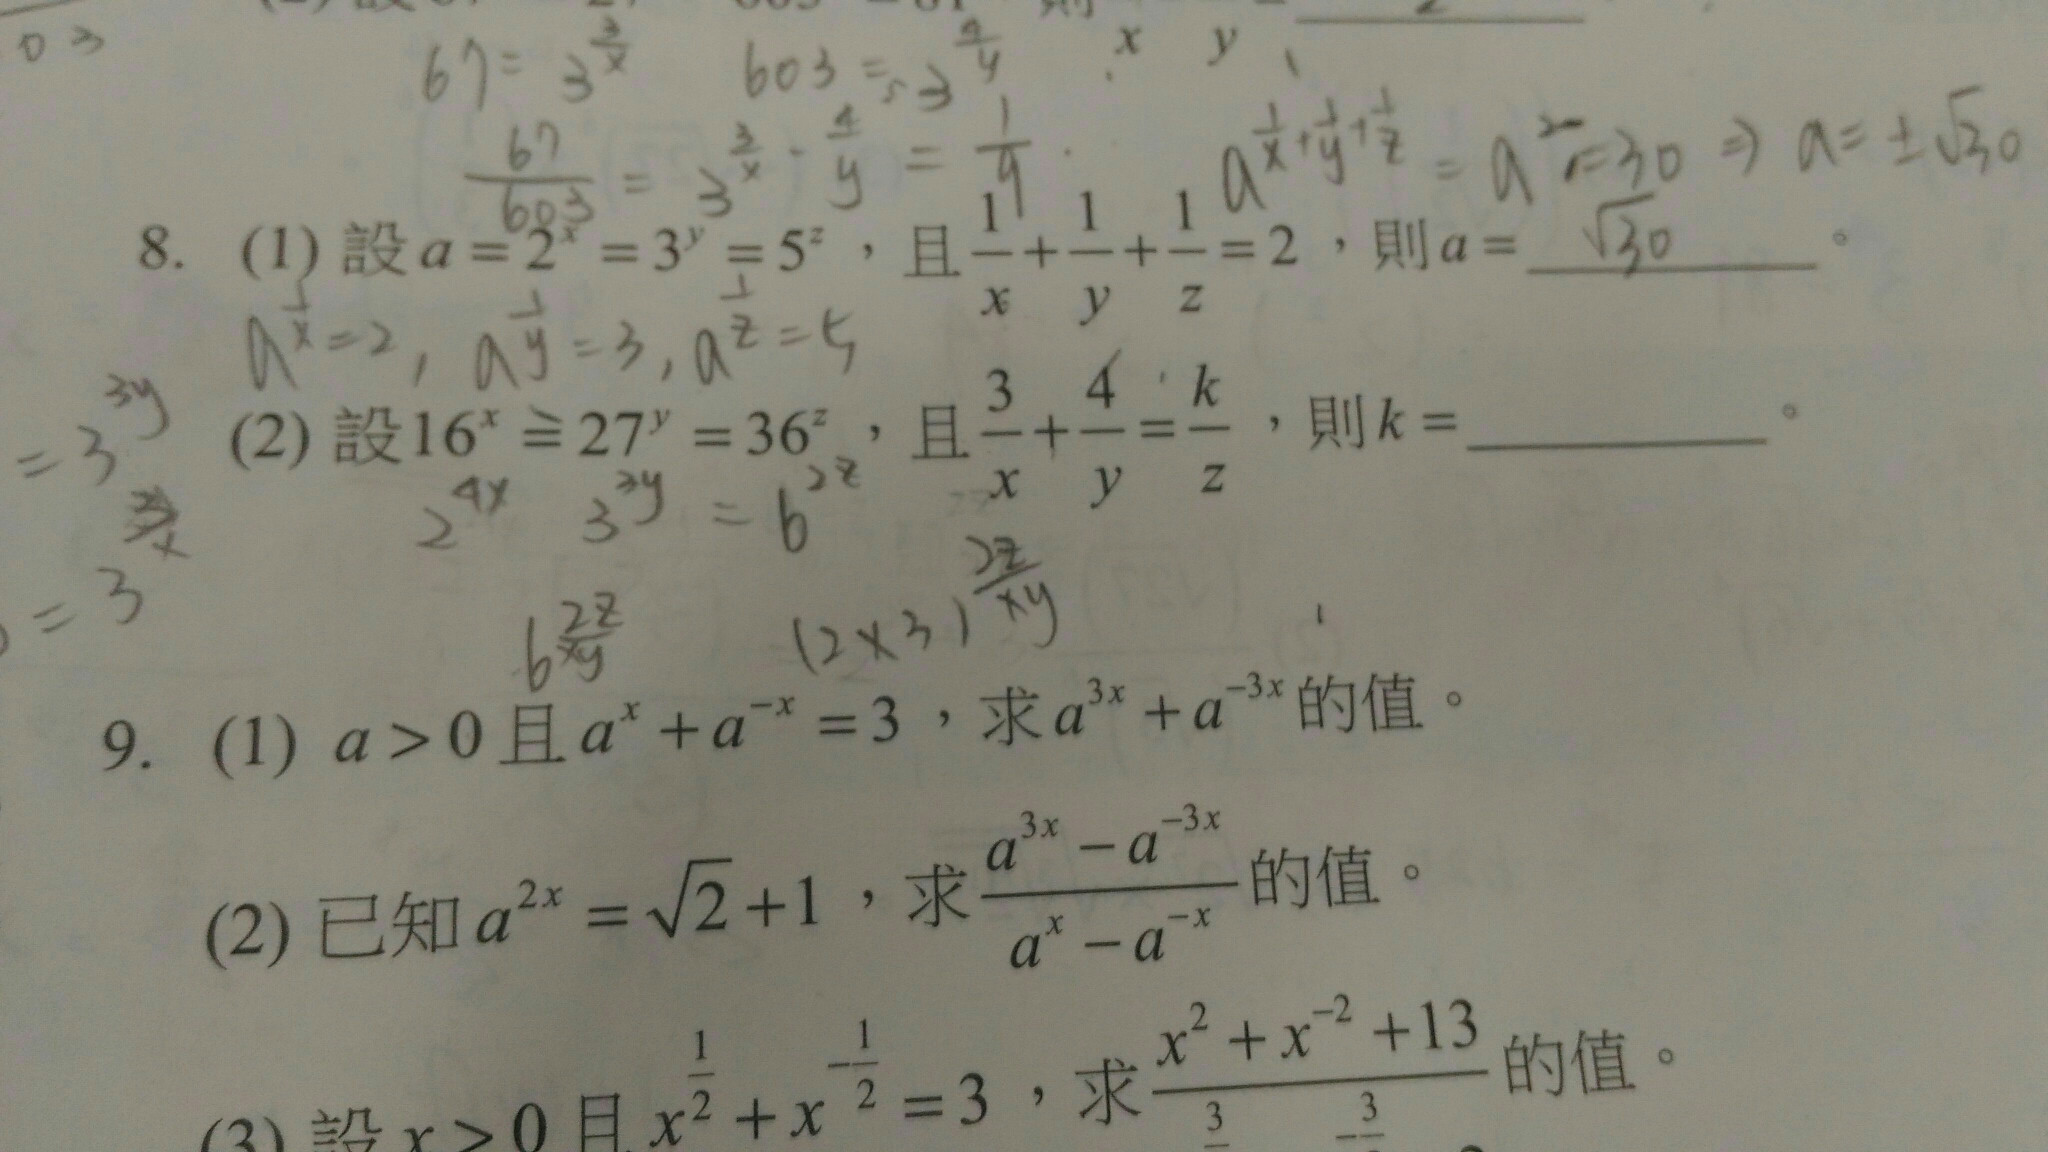 03
x y 2
67 = 3^{3/x} 603 = 3^{4/y}
67/603 = 3^{3/x - 4/y} = 1/9
a^{1/x+1/y+1/z} = a^2 = 30 ⇒ a = ±√30
8. (1) 設 a = 2^x = 3^y = 5^z，且 1/x + 1/y + 1/z = 2，則 a = √30。
a^{1/x} = 2, a^{1/y} = 3, a^{1/z} = 5
= 3^{3y}
(2) 設 16^x = 27^y = 36^z，且 3/x + 4/y = k/z，則 k = ________。
2^{4x} 3^{3y} = 6^{2z}
= 3
6^{2z/xy} (2×3)^{2z/xy}
9. (1) a > 0 且 a^x + a^{-x} = 3，求 a^{3x} + a^{-3x} 的值。
(2) 已知 a^{2x} = √2 + 1，求 (a^{3x} - a^{-3x})/(a^x - a^{-x}) 的值。
(3) 設 x > 0 且 x^{1/2} + x^{-1/2} = 3，求 x^2 + x^{-2} + 13 的值。